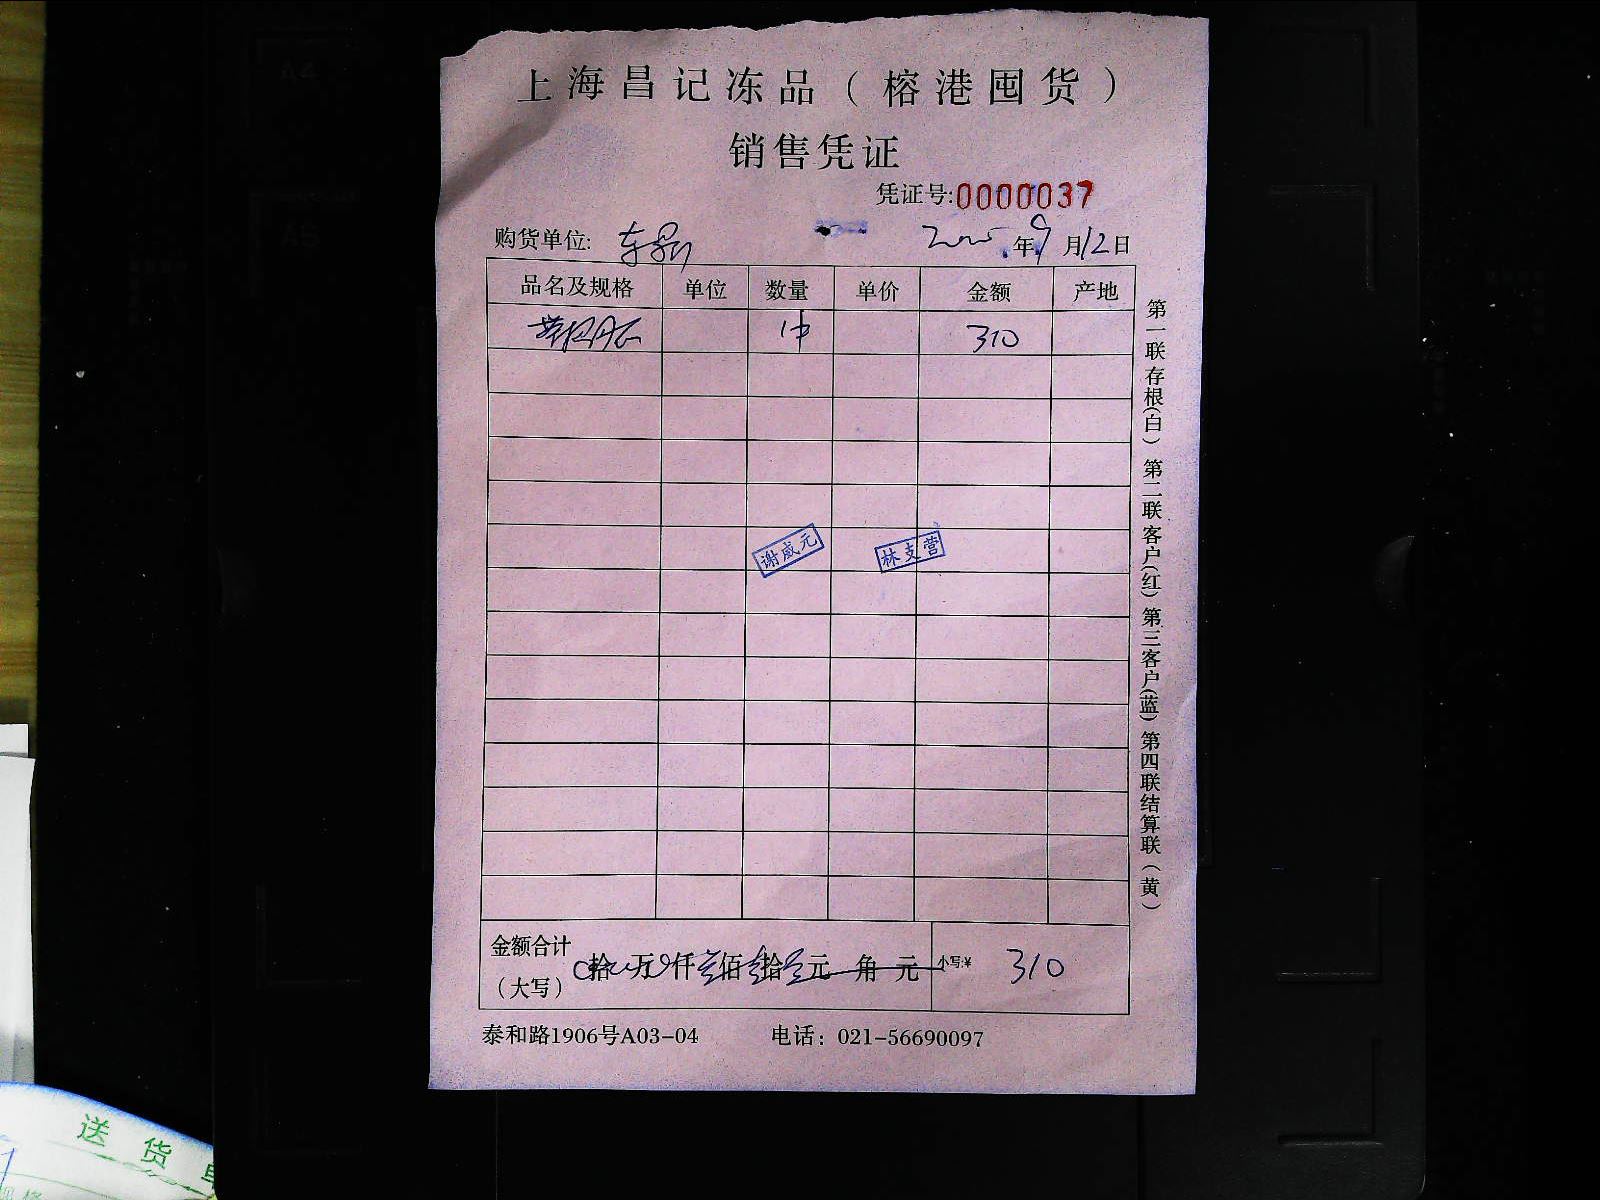 上海昌记冻品（榕港囤货）
销售凭证
凭证号:0000037
购货单位: 年9月12日
品名及规格 单位 数量 单价 金额 产地
1件 310
谢威元 林支营
金额合计（大写） 拾 万 仟 佰 拾 元 角 元 小写:¥ 310
泰和路1906号A03-04 电话：021-56690097
第一联存根(白) 第二联客户(红) 第三客户(蓝) 第四联结算联(黄)
送货单